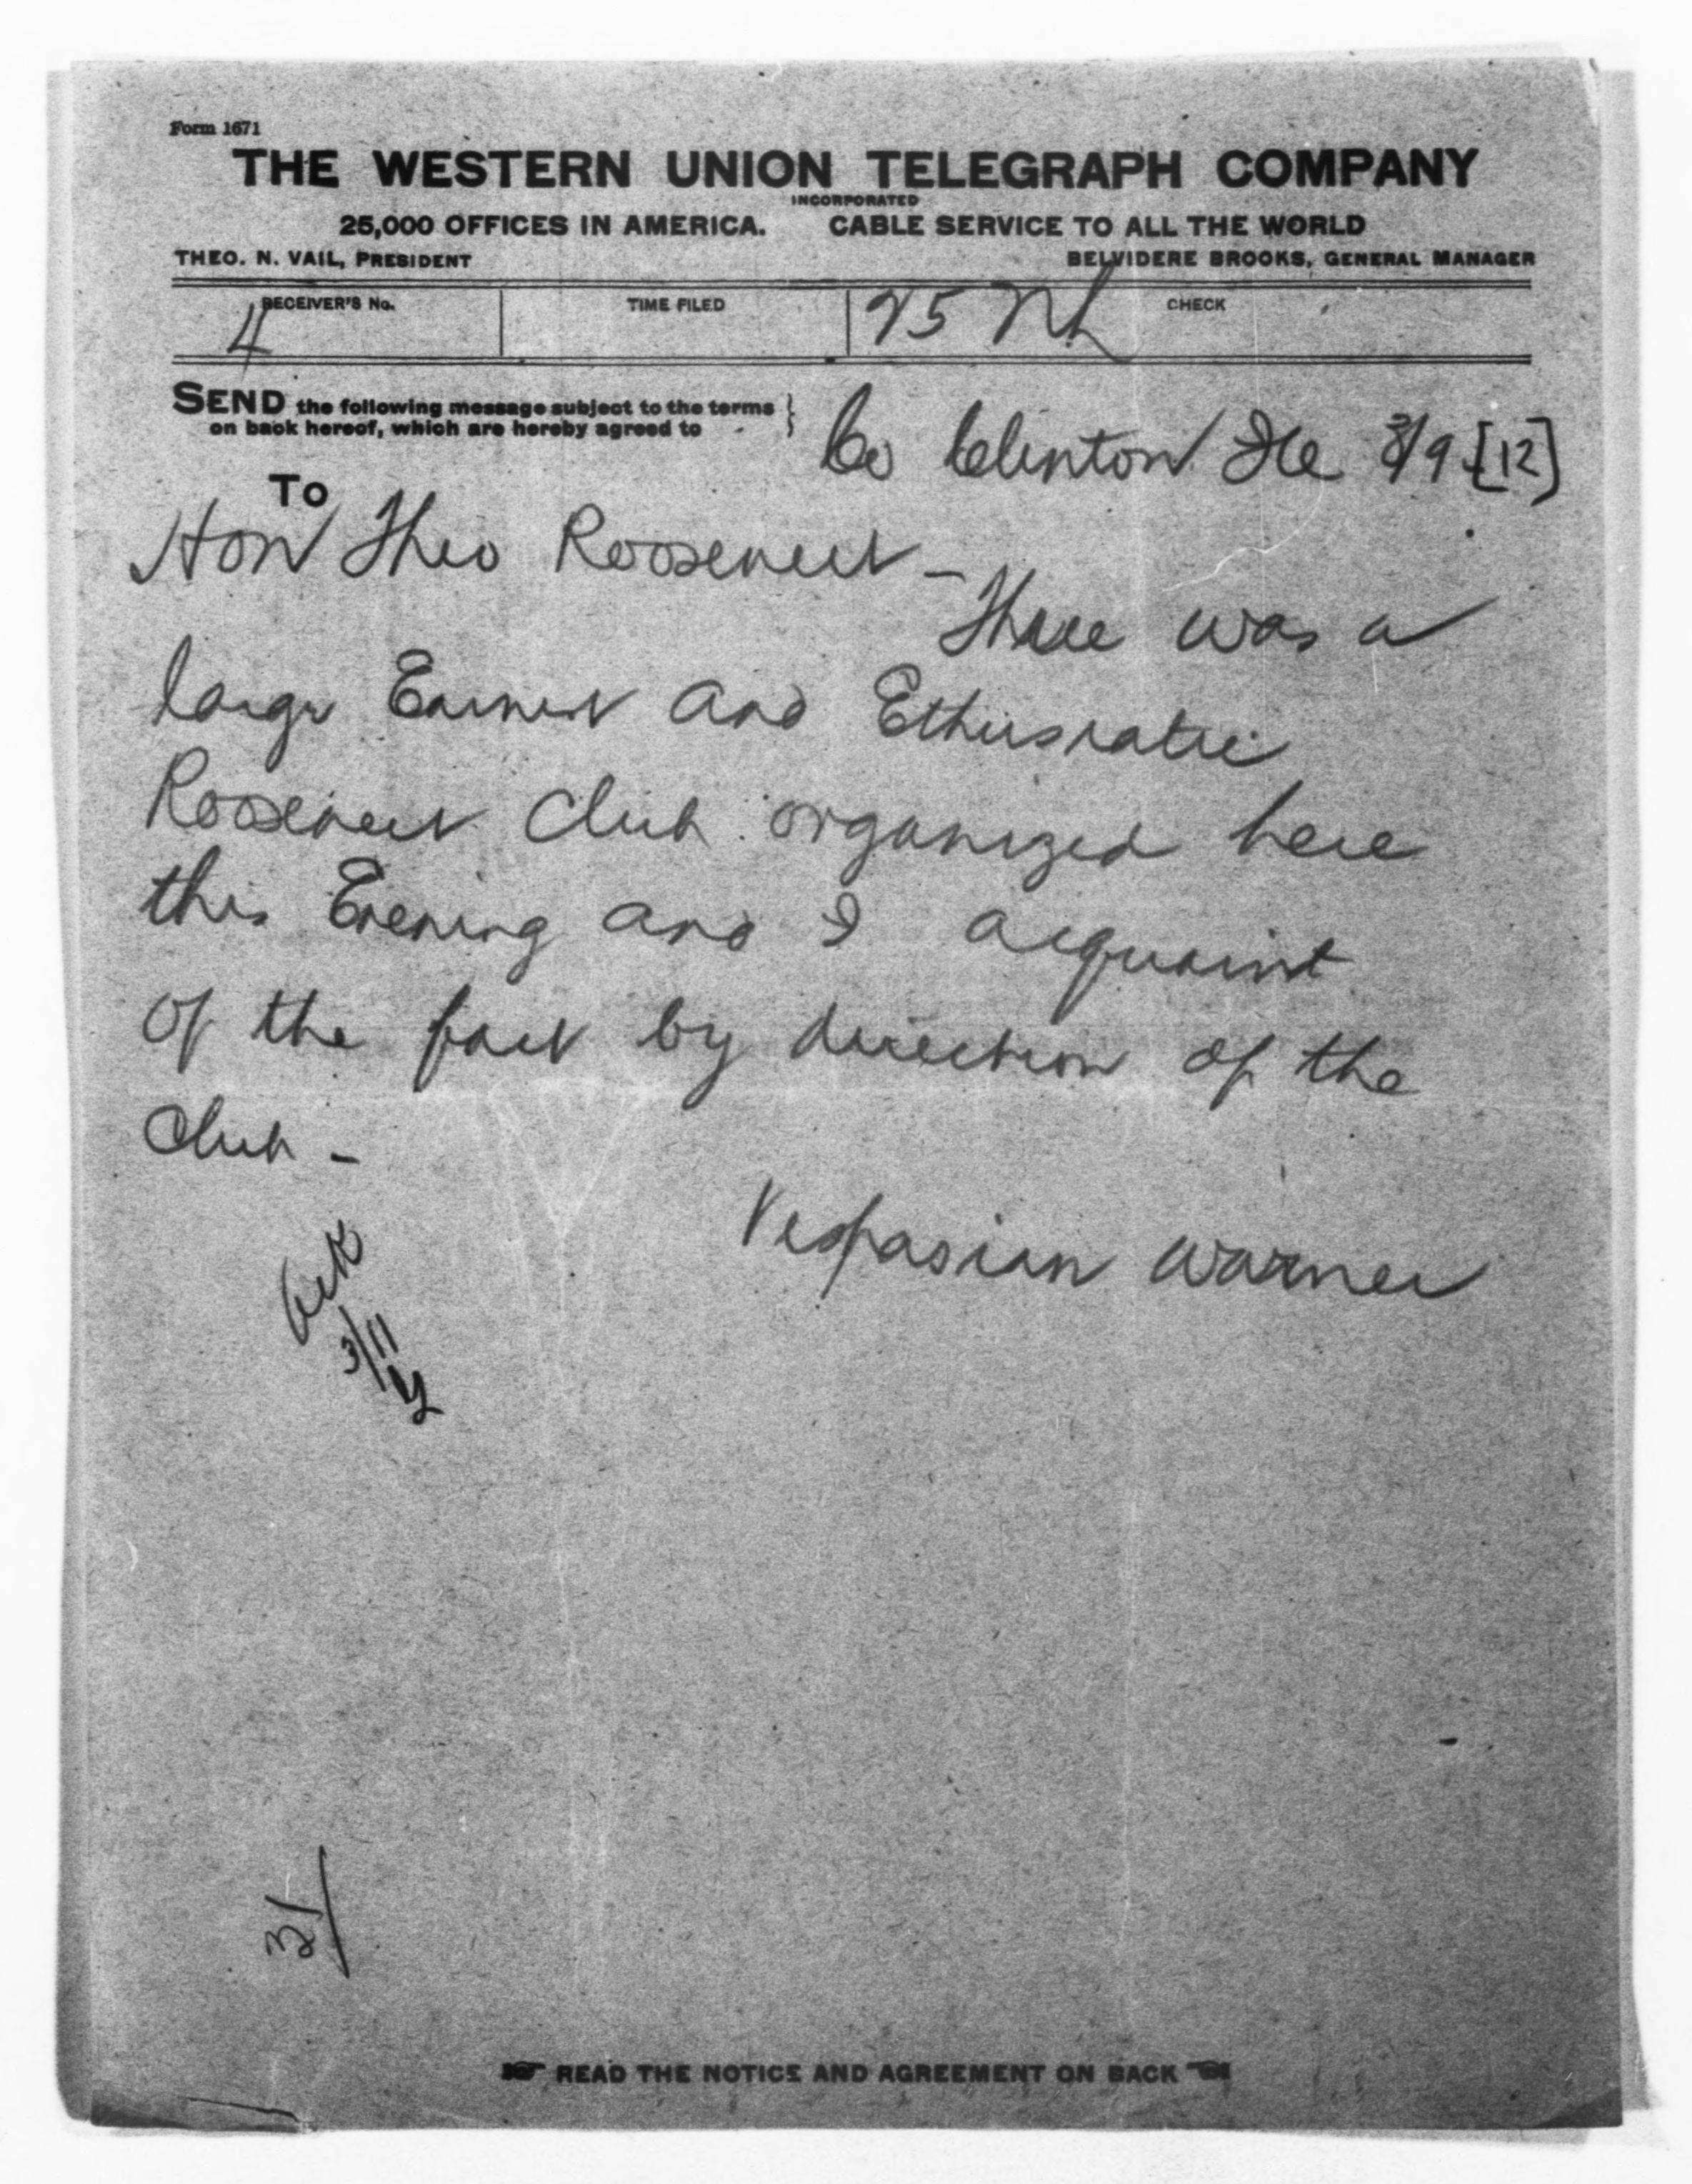 Form 1671
THE WESTERN UNION TELEGRAPH COMPANY
INCORPORATED
25,000 OFFICES IN AMERICA. CABLE SERVICE TO ALL THE WORLD
THEO. N. VAIL, PRESIDENT BELVIDERE BROOKS, GENERAL MANAGER
RECEIVER'S No. TIME FILED CHECK
4 25 Nh
SEND the following message subject to the terms
on back hereof, which are hereby agreed to
Co Clinton Ills 3/9 [12]
To
Hon Theo Roosevelt -
There was a
large Earnest and Ethusiatic
Roosevelt Club organized here
this Evening and I acquaint
of the fact by direction of the
Club -
Vespasian Warner
Ack
3/11
31/
READ THE NOTICE AND AGREEMENT ON BACK